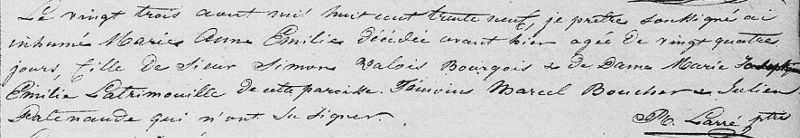 Le vingt trois aout mil huit cent trente neuf, je pretre soussigné ai
inhumé Marie Anne Emilie décédée avant hier agée de vingt quatre
jours, fille de Sieur Simon Valois Bourgois & de Dame Marie
Emilie Latrimouille de cette paroisse. Témoins Marcel Boucher & Julien
Patenaude qui n'ont su signer.
Larré ptre